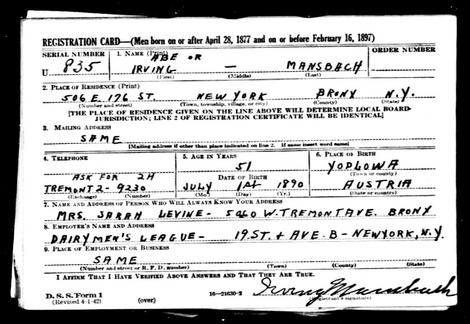 REGISTRATION CARD—(Men born on or after April 28, 1877 and on or before February 16, 1897)
SERIAL NUMBER 1. NAME (Print) ABE OR ORDER NUMBER
U 835 IRVING — MANSBACH
(First) (Middle) (Last)
2. PLACE OF RESIDENCE (Print)
506 E. 176 ST. NEW YORK BRONX N.Y.
(Number and street) (Town, township, village, or city) (County) (State)
[THE PLACE OF RESIDENCE GIVEN ON THE LINE ABOVE WILL DETERMINE LOCAL BOARD
JURISDICTION; LINE 2 OF REGISTRATION CERTIFICATE WILL BE IDENTICAL]
3. MAILING ADDRESS
SAME
[Mailing address if other than place indicated on line 2. If same insert word same]
4. TELEPHONE 5. AGE IN YEARS 6. PLACE OF BIRTH
ASK FOR 2A 51 YODLOWA
DATE OF BIRTH (Town or county)
TREMONT 2-9230 JULY 1ST 1890 AUSTRIA
(Exchange) (Number) (Mo.) (Day) (Yr.) (State or country)
7. NAME AND ADDRESS OF PERSON WHO WILL ALWAYS KNOW YOUR ADDRESS
MRS. SARAH LEVINE - W. TREMONT AVE. BRONX
8. EMPLOYER'S NAME AND ADDRESS
DAIRYMEN'S LEAGUE - 19 ST. + AVE. B - NEW YORK, N.Y.
9. PLACE OF EMPLOYMENT OR BUSINESS
SAME
(Number and street or R. F. D. number) (Town) (County) (State)
I AFFIRM THAT I HAVE VERIFIED ABOVE ANSWERS AND THAT THEY ARE TRUE.
D. S. S. Form 1 Irving Mansbach
(Revised 4-1-42) (over) 16—21630-2 (Registrant's signature)